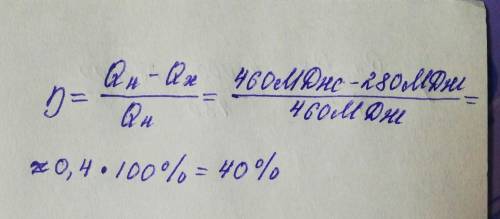 η = (Qн - Qх)/Qн = (460МДж - 280МДж)/460МДж =
≈ 0,4 • 100% = 40%